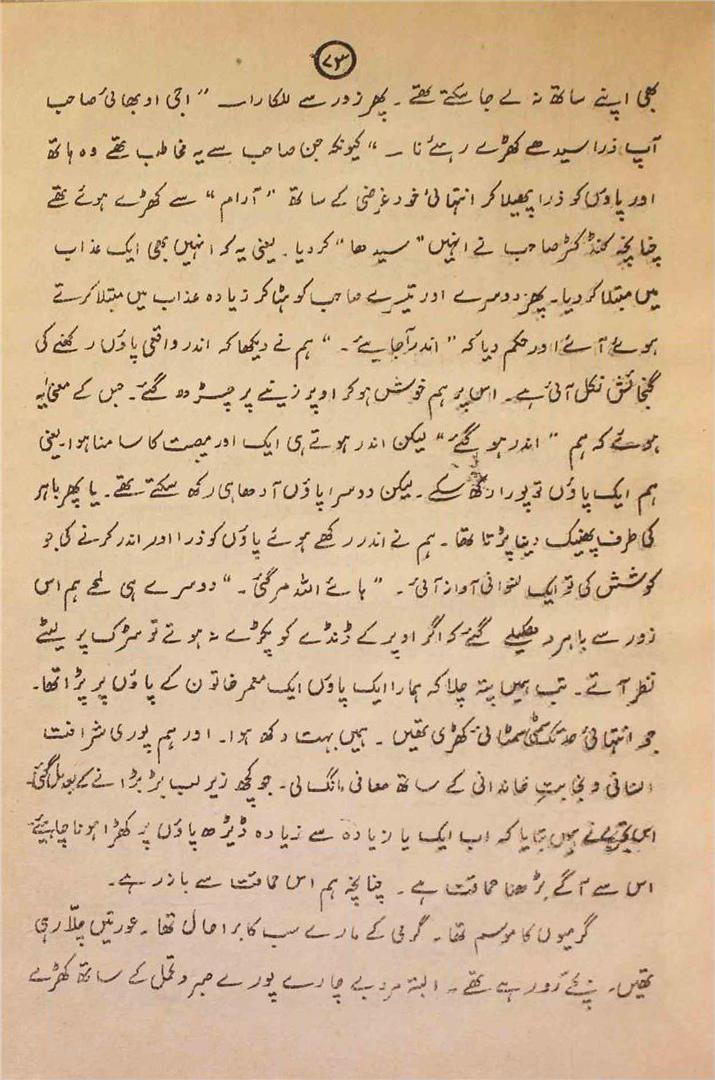 ۷۳
بھی اپنے ساتھ نہ لے جا سکتے تھے۔ پھر زور سے للکارا۔ "اجی او بھائی صاحب
آپ ذرا سیدھے کھڑے رہیئے نا۔" کیونکہ جن صاحب سے یہ مخاطب تھے وہ ہاتھ
اور پاؤں کو ذرا پھیلا کر انتہائی خود غرضی کے ساتھ "آرام" سے کھڑے ہوئے تھے
چنانچہ کنڈکٹر صاحب نے انہیں "سیدھا" کر دیا۔ یعنی یہ کہ انہیں بھی ایک عذاب
میں مبتلا کر دیا۔ پھر دوسرے اور تیسرے صاحب کو ہٹا کر زیادہ عذاب میں مبتلا کرتے
ہوئے آئے اور حکم دیا کہ "اندر آجایئے۔" ہم نے دیکھا کہ اندر واقعی پاؤں رکھنے کی
گنجائش نکل آئی ہے۔ اس پر ہم خوش ہو کر اوپر زینے پر چڑھ گئے۔ جس کے معنی یہ
ہوئے کہ ہم "اندر ہو گئے" لیکن اندر ہوتے ہی ایک اور مصیبت کا سامنا ہوا۔ یعنی
ہم ایک پاؤں تو پورا رکھ سکے۔ لیکن دوسرا پاؤں آدھا ہی رکھ سکتے تھے۔ یا پھر باہر
کی طرف پھینک دینا پڑتا تھا۔ ہم نے اندر رکھے ہوئے پاؤں کو ذرا اور اندر کرنے کی جو
کوشش کی تو ایک نسوانی آواز آئی۔ "ہائے اللہ مر گئی۔" دوسرے ہی لمحے ہم اس
زور سے باہر دھکیلے گئے کہ اگر اوپر کے ڈنڈے کو پکڑے نہ ہوتے تو سڑک پر لیٹے
نظر آتے۔ تب ہمیں پتہ چلا کہ ہمارا ایک پاؤں ایک معمر خاتون کے پاؤں پر پڑا تھا۔
جو انتہائی حد تک سمٹی سمٹائی کھڑی تھیں۔ ہمیں بہت دکھ ہوا۔ اور ہم پوری شرافت
انسانی و نجابتِ خاندانی کے ساتھ معافی مانگ لی۔ جو کچھ زیر لب بڑبڑانے کے بعد مل گئی۔
اس تجربے نے ہمیں بتایا کہ اب ایک یا زیادہ سے زیادہ ڈیڑھ پاؤں پر کھڑا ہونا چاہیئے
اس سے آگے بڑھنا حماقت ہے۔ چنانچہ ہم اس حماقت سے باز رہے۔
گرمیوں کا موسم تھا۔ گرمی کے مارے سب کا برا حال تھا۔ عورتیں چلّا رہی
تھیں۔ بچے رو رہے تھے۔ البتہ مرد بے چارے پورے صبر و تحمل کے ساتھ کھڑے